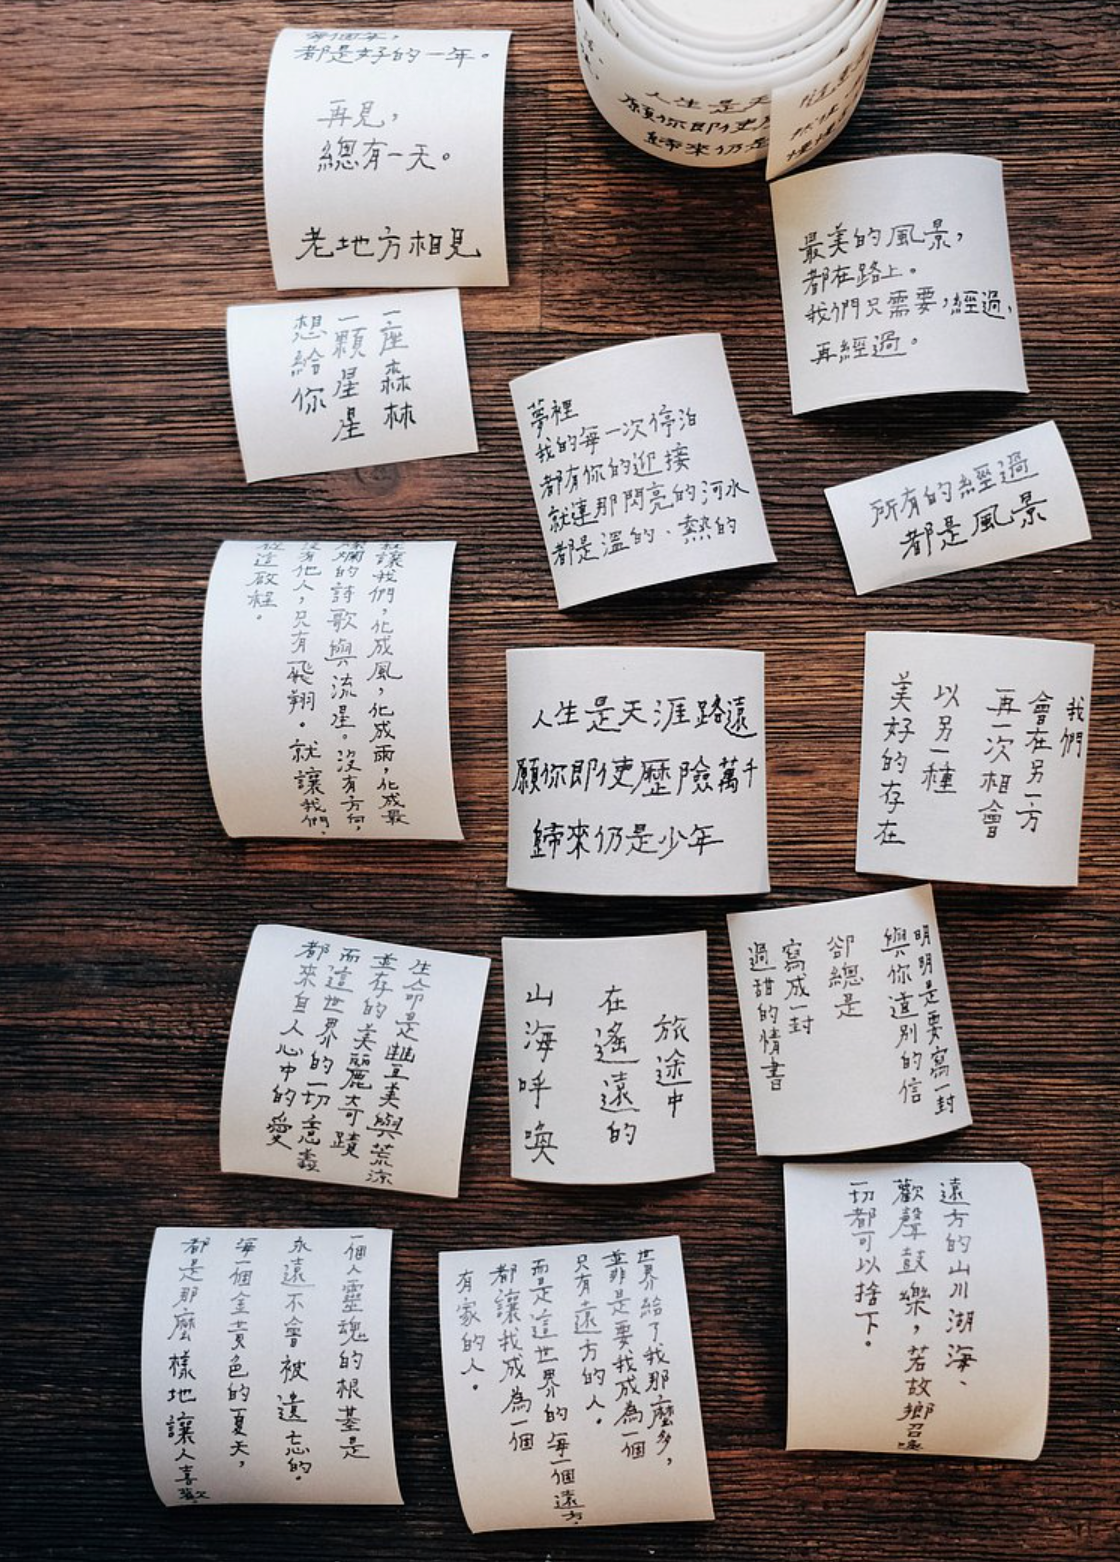 都是好的一年。
再見，
總有一天。
老地方相見
人生是天
願你即使
歸來仍是
最美的風景，
都在路上。
我們只需要，經過，
再經過。
一座森林
一顆星星
想給你
夢裡
我的每一次停泊
都有你的迎接
就連那閃亮的河水
都是溫的、熱的
所有的經過
都是風景
就讓我們，化成風，化成雨，化成最
燦爛的詩歌與流星。沒有方向，
沒有他人，只有飛翔。就讓我們，
從這啟程。
人生是天涯路遠
願你即使歷險萬千
歸來仍是少年
我們
會在另一方
再一次相會
以另一種
美好的存在
生命是豐美與荒涼
並存的美麗奇蹟
而這世界的一切意義
都來自人心中的愛
旅途中
在遙遠的
山海呼喚
明明是要寫一封
與你遠別的信
卻總是
寫成一封
過甜的情書
一個人靈魂的根基是
永遠不會被遺忘的。
每一個金黃色的夏天，
都是那麼樣地讓人喜歡。
世界給了我那麼多，
並非是要我成為一個
只有遠方的人。
而是這世界的每一個遠方，
都讓我成為一個
有家的人。
遠方的山川湖海、
歡聲鼓樂，若故鄉召喚
一切都可以捨下。